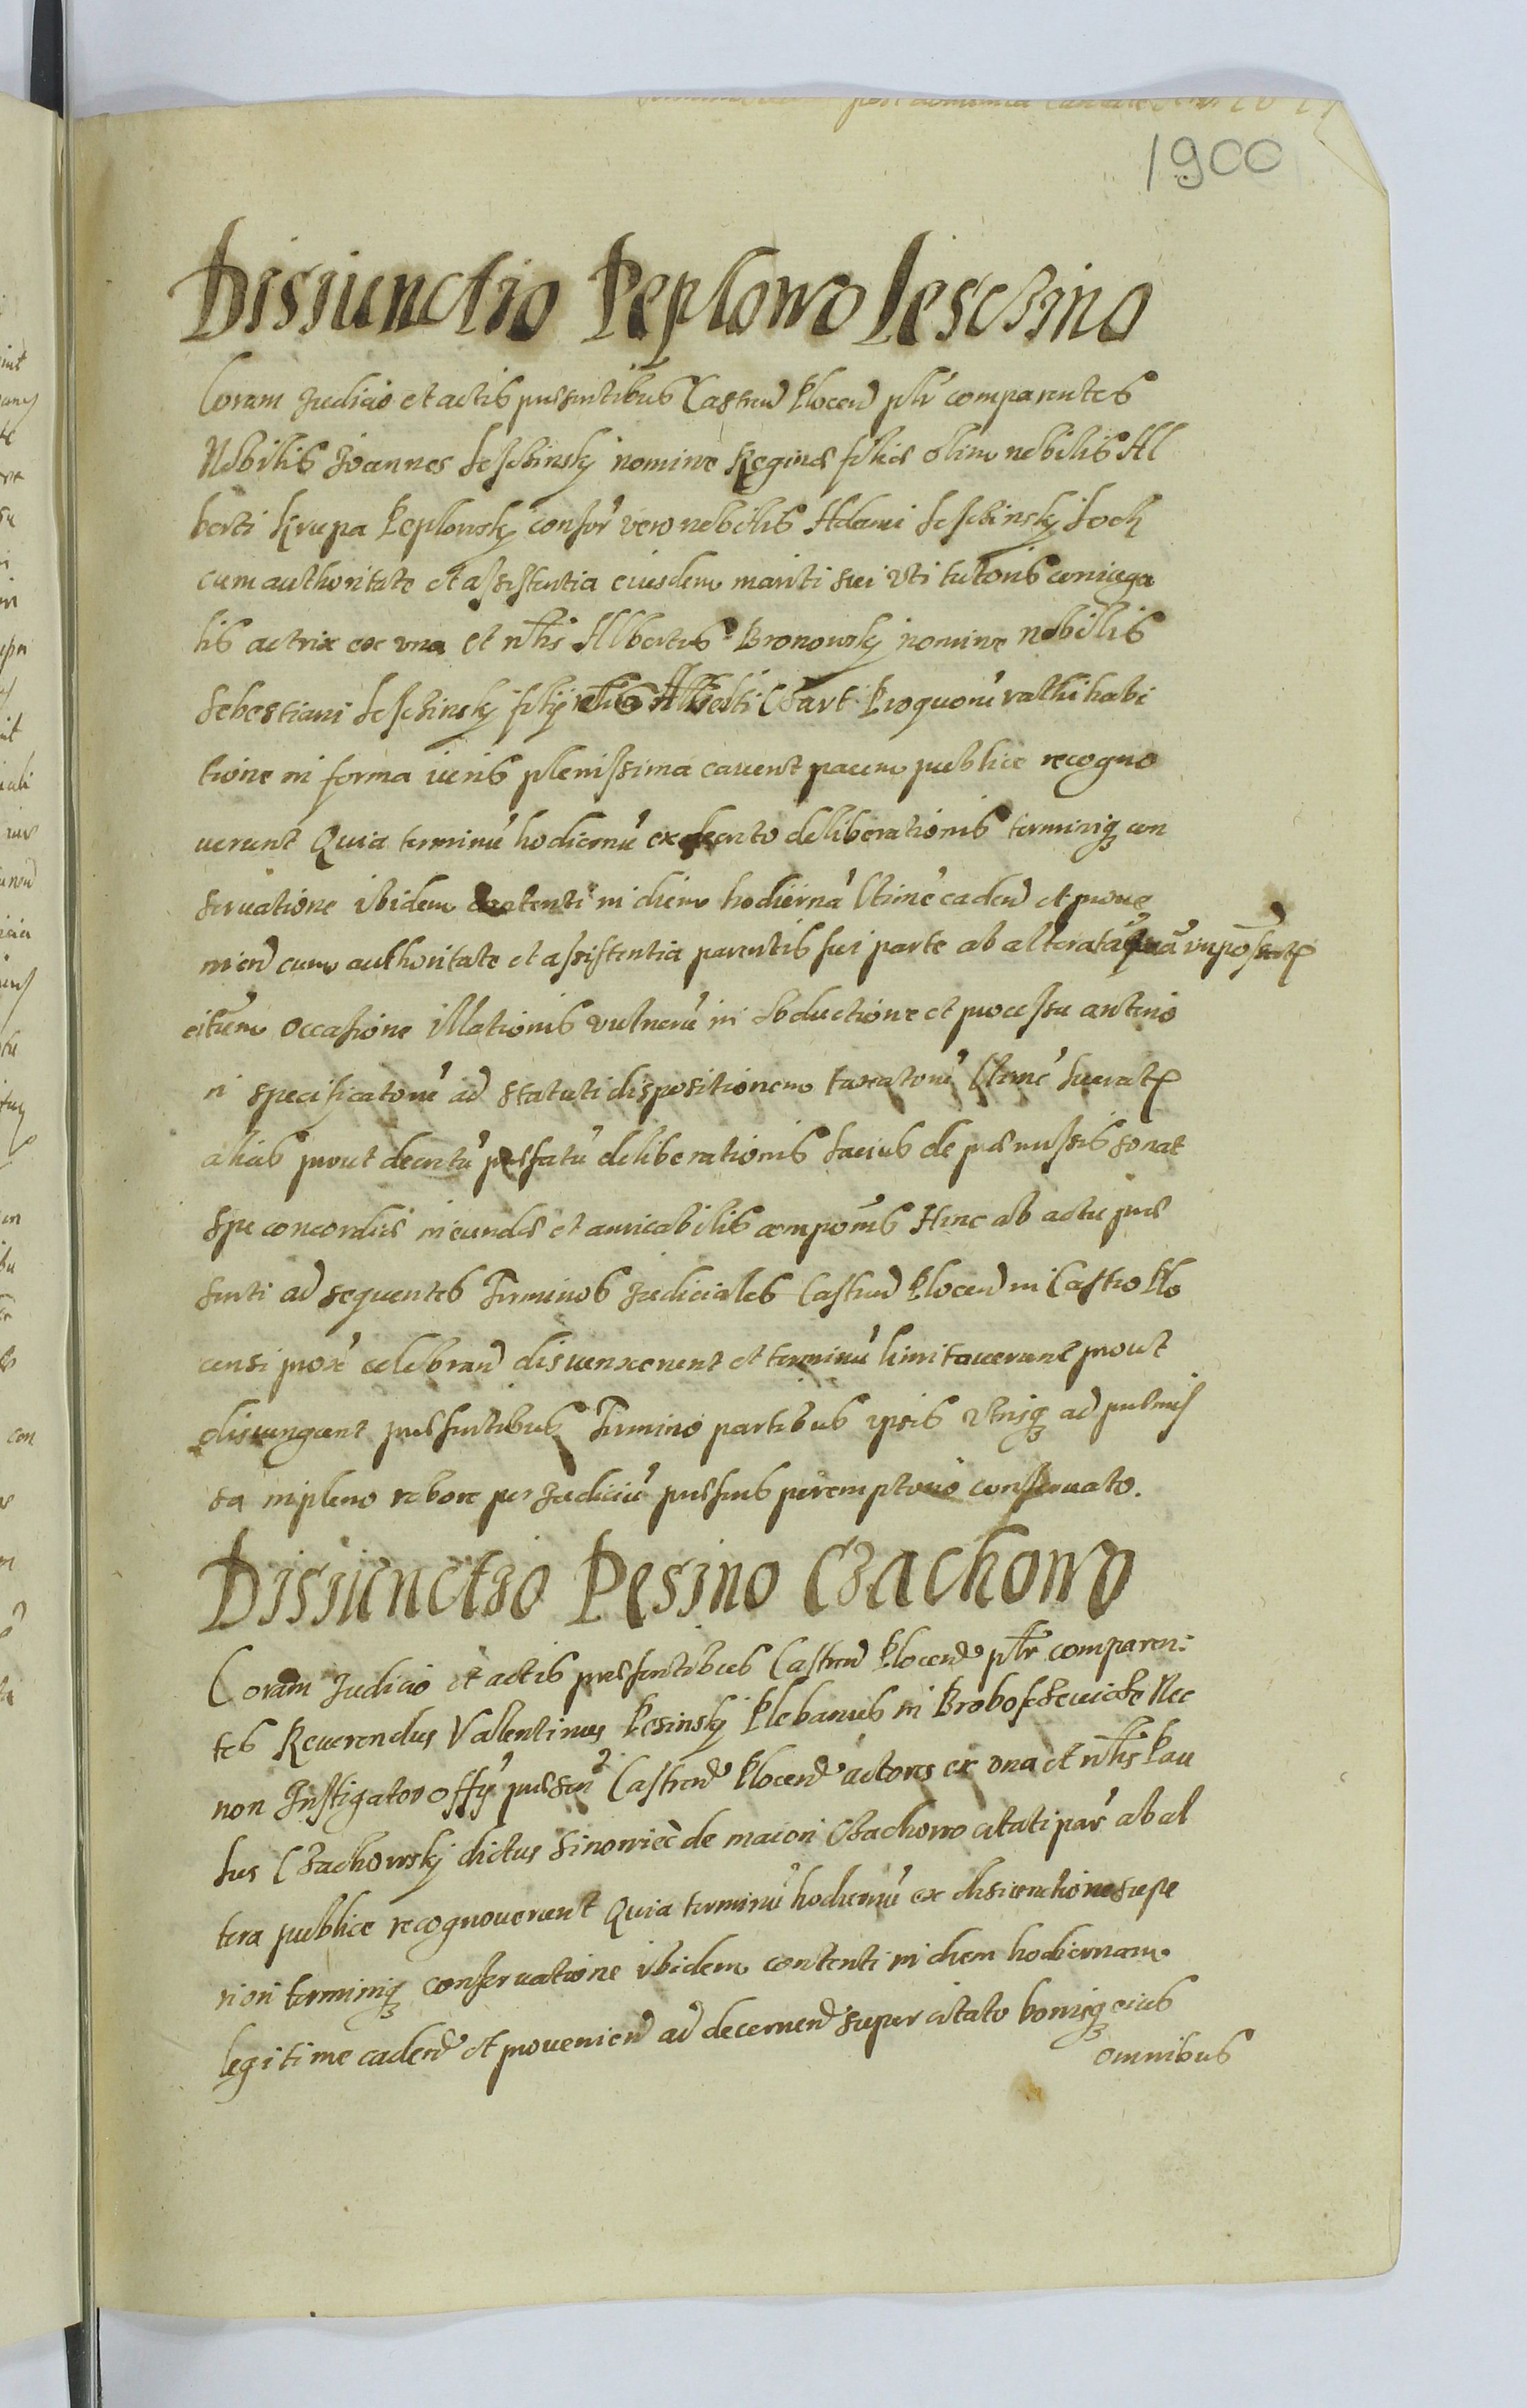 1900
Disiunctio Peplowo Lesczino
Coram Judicio et actis præsentibus Castren Plocen plr comparentes
Nobilis Joannes Leschinsky nomine Reginæ filiæ olim nobilis Al
berti Krupa Peplowsky consor vero nobilis Adami Leschinsky
cum authoritate et assistentia eiusdem mariti sui vti tutoris coniuga
lis actrix ex vna et nblis Albertus Bronowsky nomine nobilis
Sebestiani Leschinsky filij Alberti Czart Proquorū rathihabi
tione in forma iuris plenissima cauent parum publice recogno
uerunt Quia terminū hodiernū ex decreto deliberationis terminiq con
seruatione ibidem contenti in diem hodierná ltime caden et proue
nien cum authoritate et assistentia parentis sui parte ab altera
citatum Occasione illationis vulnerū in obductione et processu anterio
ri specificatorū ad statuti dispositionem taxatorū
alias prout decretū præfatū deliberationis latius de præmissis sonat
Spe concordiæ ineundæ et amicabilis componis Hinc ab actu præ
senti ad sequentes Terminos Judiciales Castren Plocen in Castro Plo
censi prox celebran disiunxerunt et terminū limitauerunt prout
disiungunt præsentibus Termino partibus ipsis vtrisq ad præmis
sa in pleno robore per Judiciū præsens peremptorio conseruato.
Disiunctio Pesino Czachowo
Coram Judicio et actis præsentibus Castren Plocen plr comparen:
tes Reuerendus Valentinus Pesinsky Plebanus in Nec
non Instigator offy præsen Castren Plocen actores ex vna et nblis Pau
lus Czachowsky dictus Sinowiec de maiori Czachowo citati par ab al
tera publice recognouerunt Quia terminū hodiernū ex disiunctione supe
riori terminiq conseruatione ibidem contenti in diem hodiernam
legitime caden et prouenien ad decernen super citato bonisq eius
omnibus